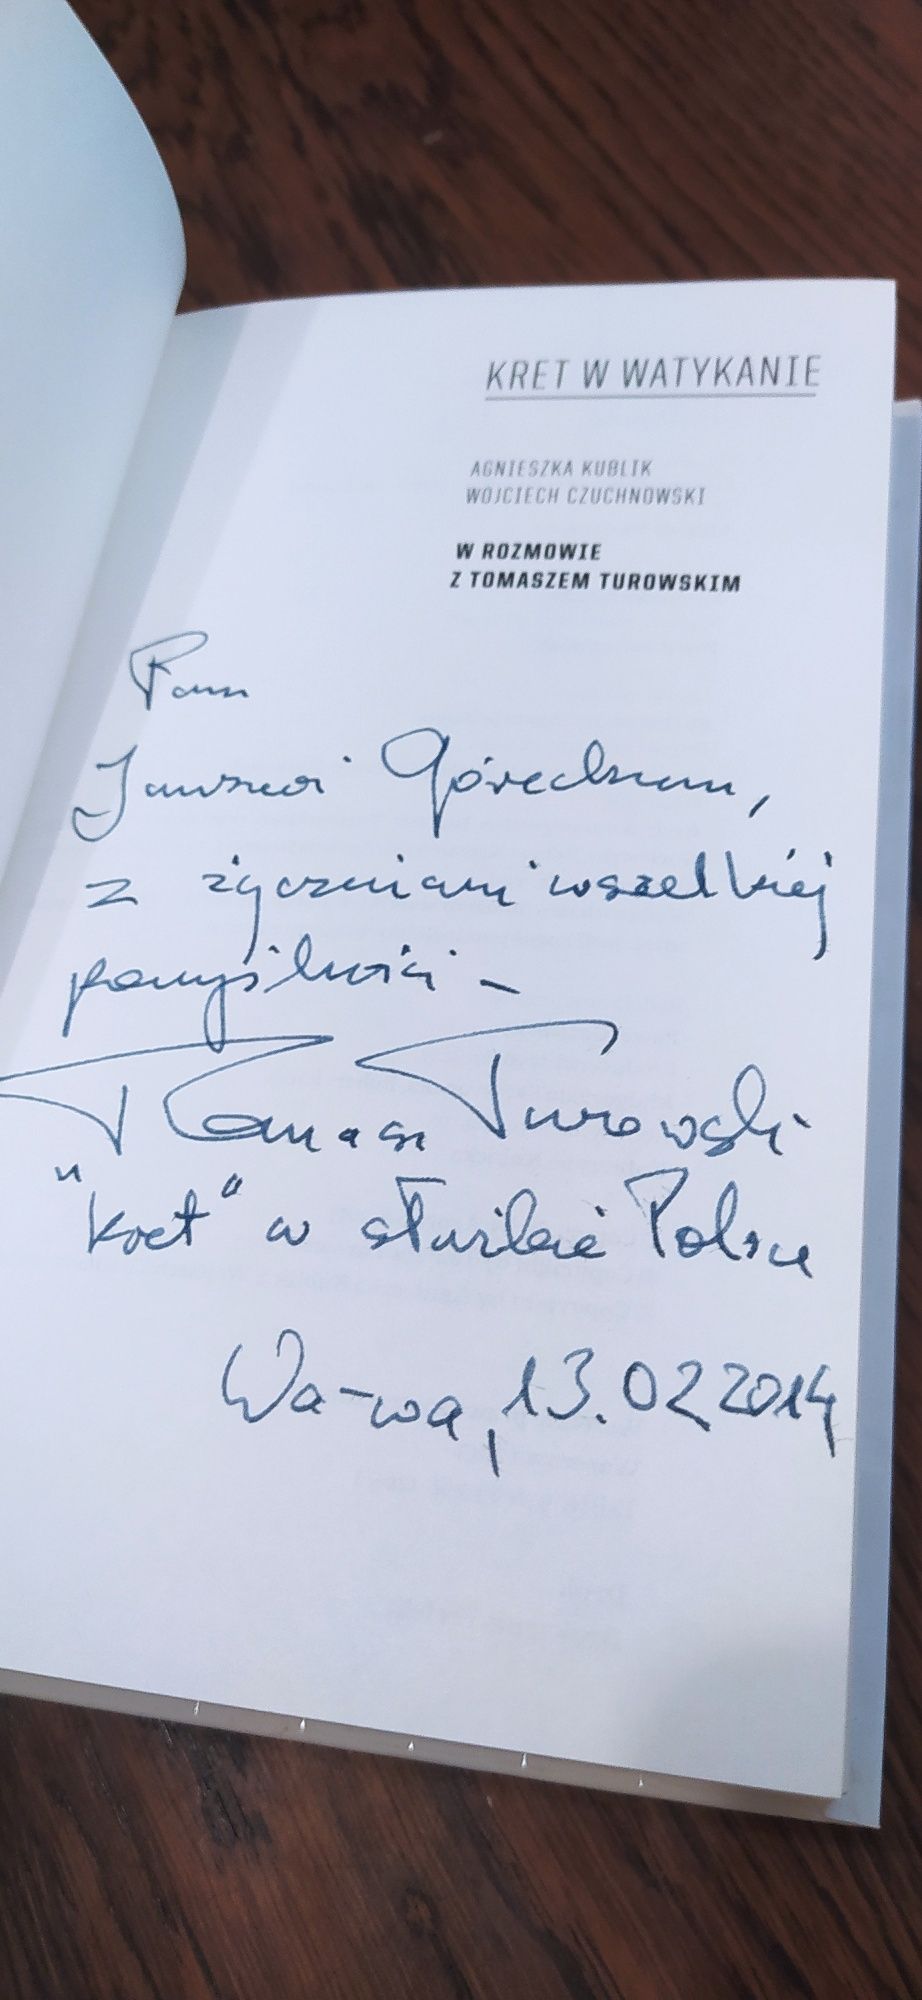 KRET W WATYKANIE
AGNIESZKA KUBLIK
WOJCIECH CZUCHNOWSKI
W ROZMOWIE
Z TOMASZEM TUROWSKIM
Panu
Góreckiemu,
z życzeniami wszelkiej
pomyślności –
Tomasz Turowski
"kret" w służbie Polsce
Wa-wa, 13.02.2014